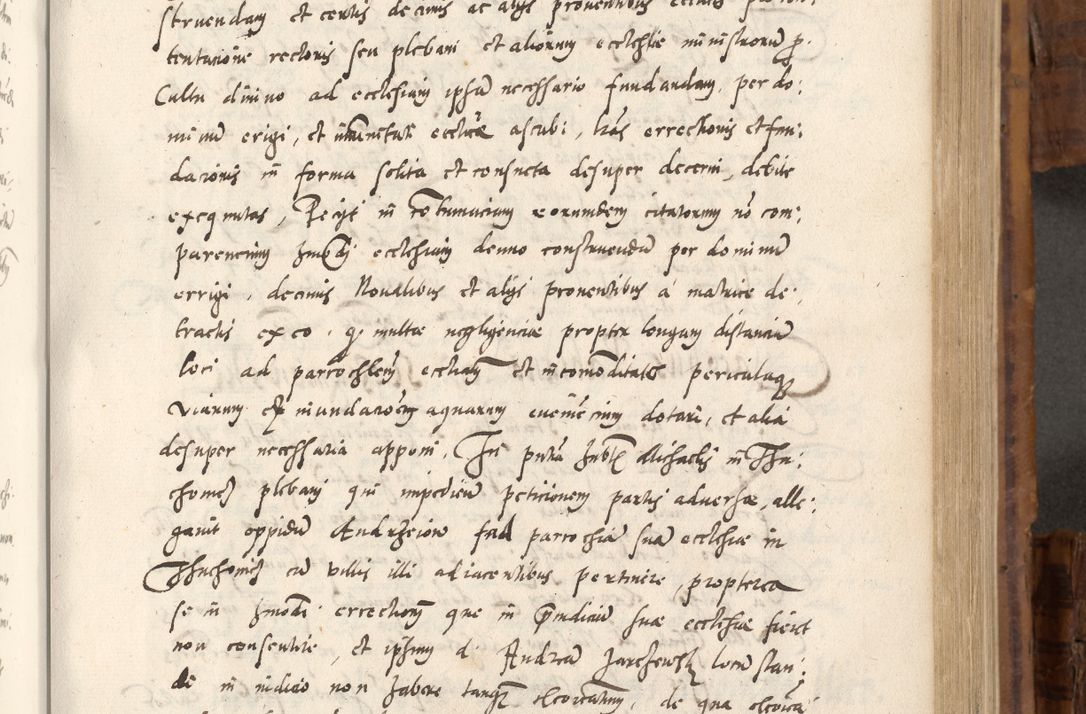 struendam et certis decimis ac alijs proventibus
tentacione rectoris seu plebani et aliorum ecclesie ministrorum p.
Cultu divino ad ecclesiam ipsam necessario fundandam, per do:
minum erigi, et ecclie ascribi, lras errectionis et fun:
dacionis in forma solita et consueta desuper decerni, debite
exequutas, Recijt in cotumaciam eorumdem citatorum no com:
parencium hmodi ecclesiam denuo construendam per dominum
errigi, decimis Novalibus et alijs proventibus a matrice de:
tractis ex eo, q multae negligenciae propter longam distanciam
loci ad parrochlem ecctiam et incomoditates periculaq
viarum ex inundacoem aquarum evenie cium dotari, et alia
desuper necessaria apponi, In puta hnbl Michaelis in Thu:
chomej plebani qui impediens peticionem partis adversae, alle:
gavit oppidum Andrzeiow fud parrochiam suam ecclesiae in
Thuchomiej cu villis illi adiacentibus pertinere, propterea
se in hmodi errectionem que in pndicium suae ecclesiae fieret
non consentire, et ipsum d. Andream Jarczewsky locum stan:
di in iudicio non habere tanq excoicatum, de qua excoica